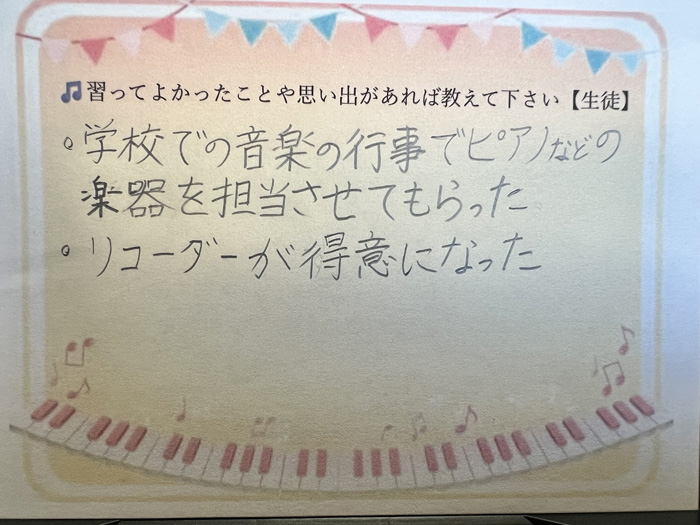 習ってよかったことや思い出があれば教えて下さい【生徒】
。学校での音楽の行事でピアノなどの
楽器を担当させてもらった
。リコーダーが得意になった